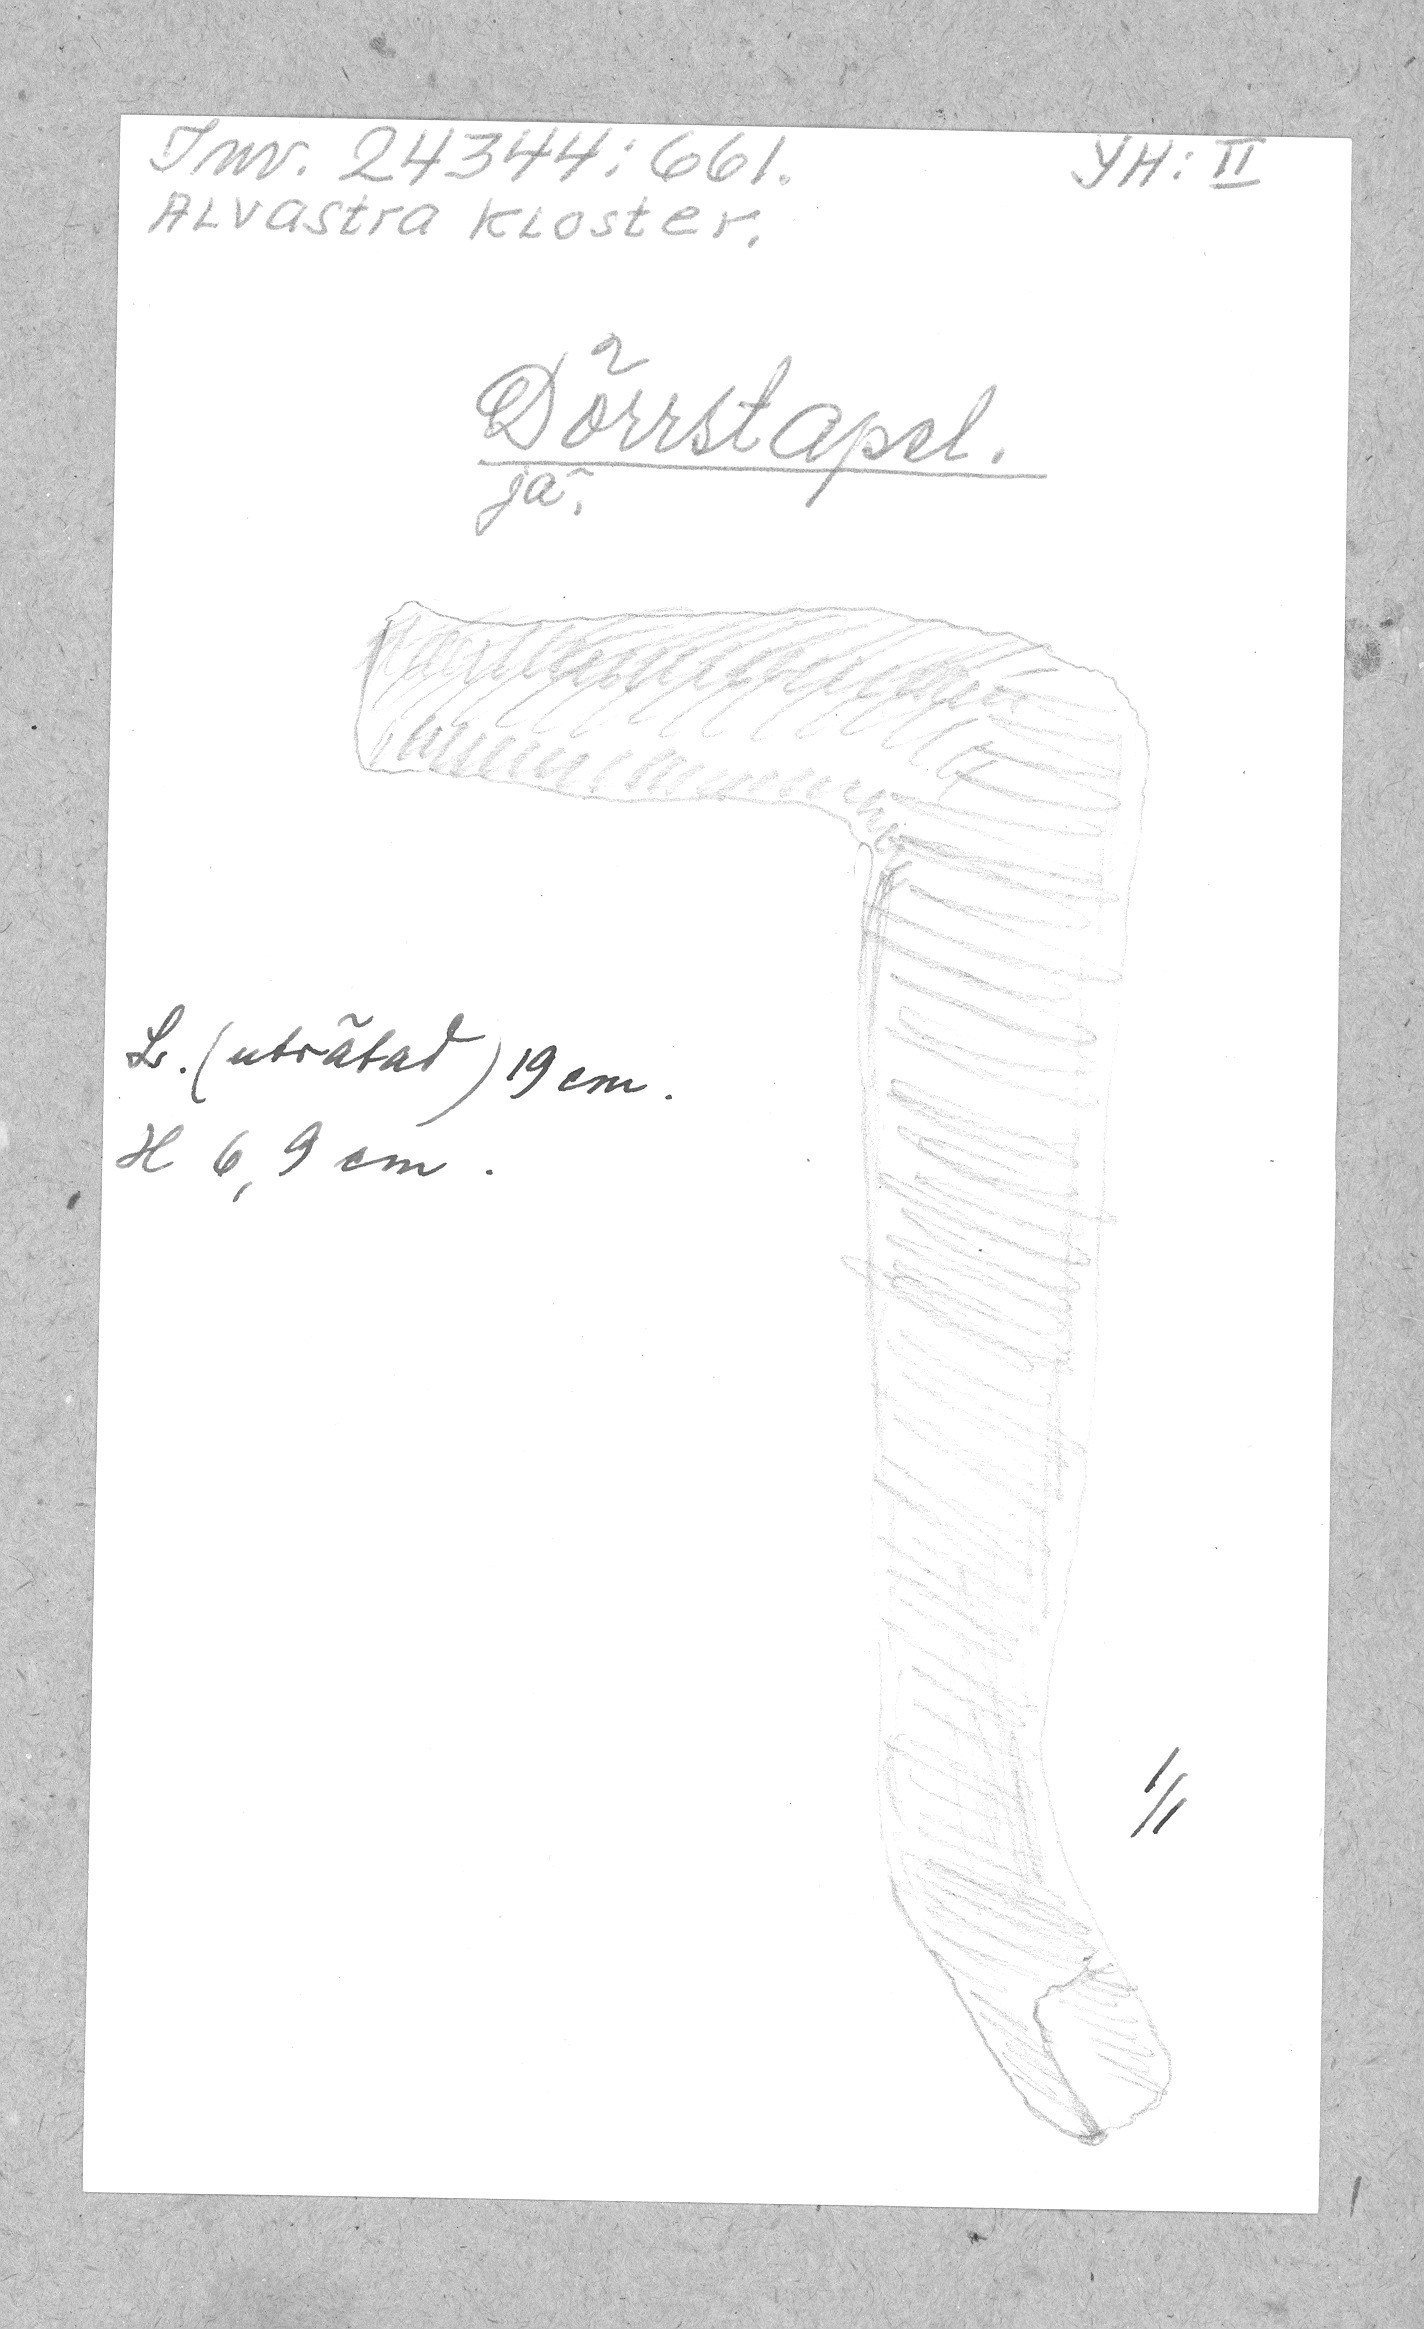 Inv. 24344:661. YH: II
ALvastra kLoster.
Dörrstapel.
ja.
L. (uträtad) 19 cm.
H 6,9 cm.
1/1